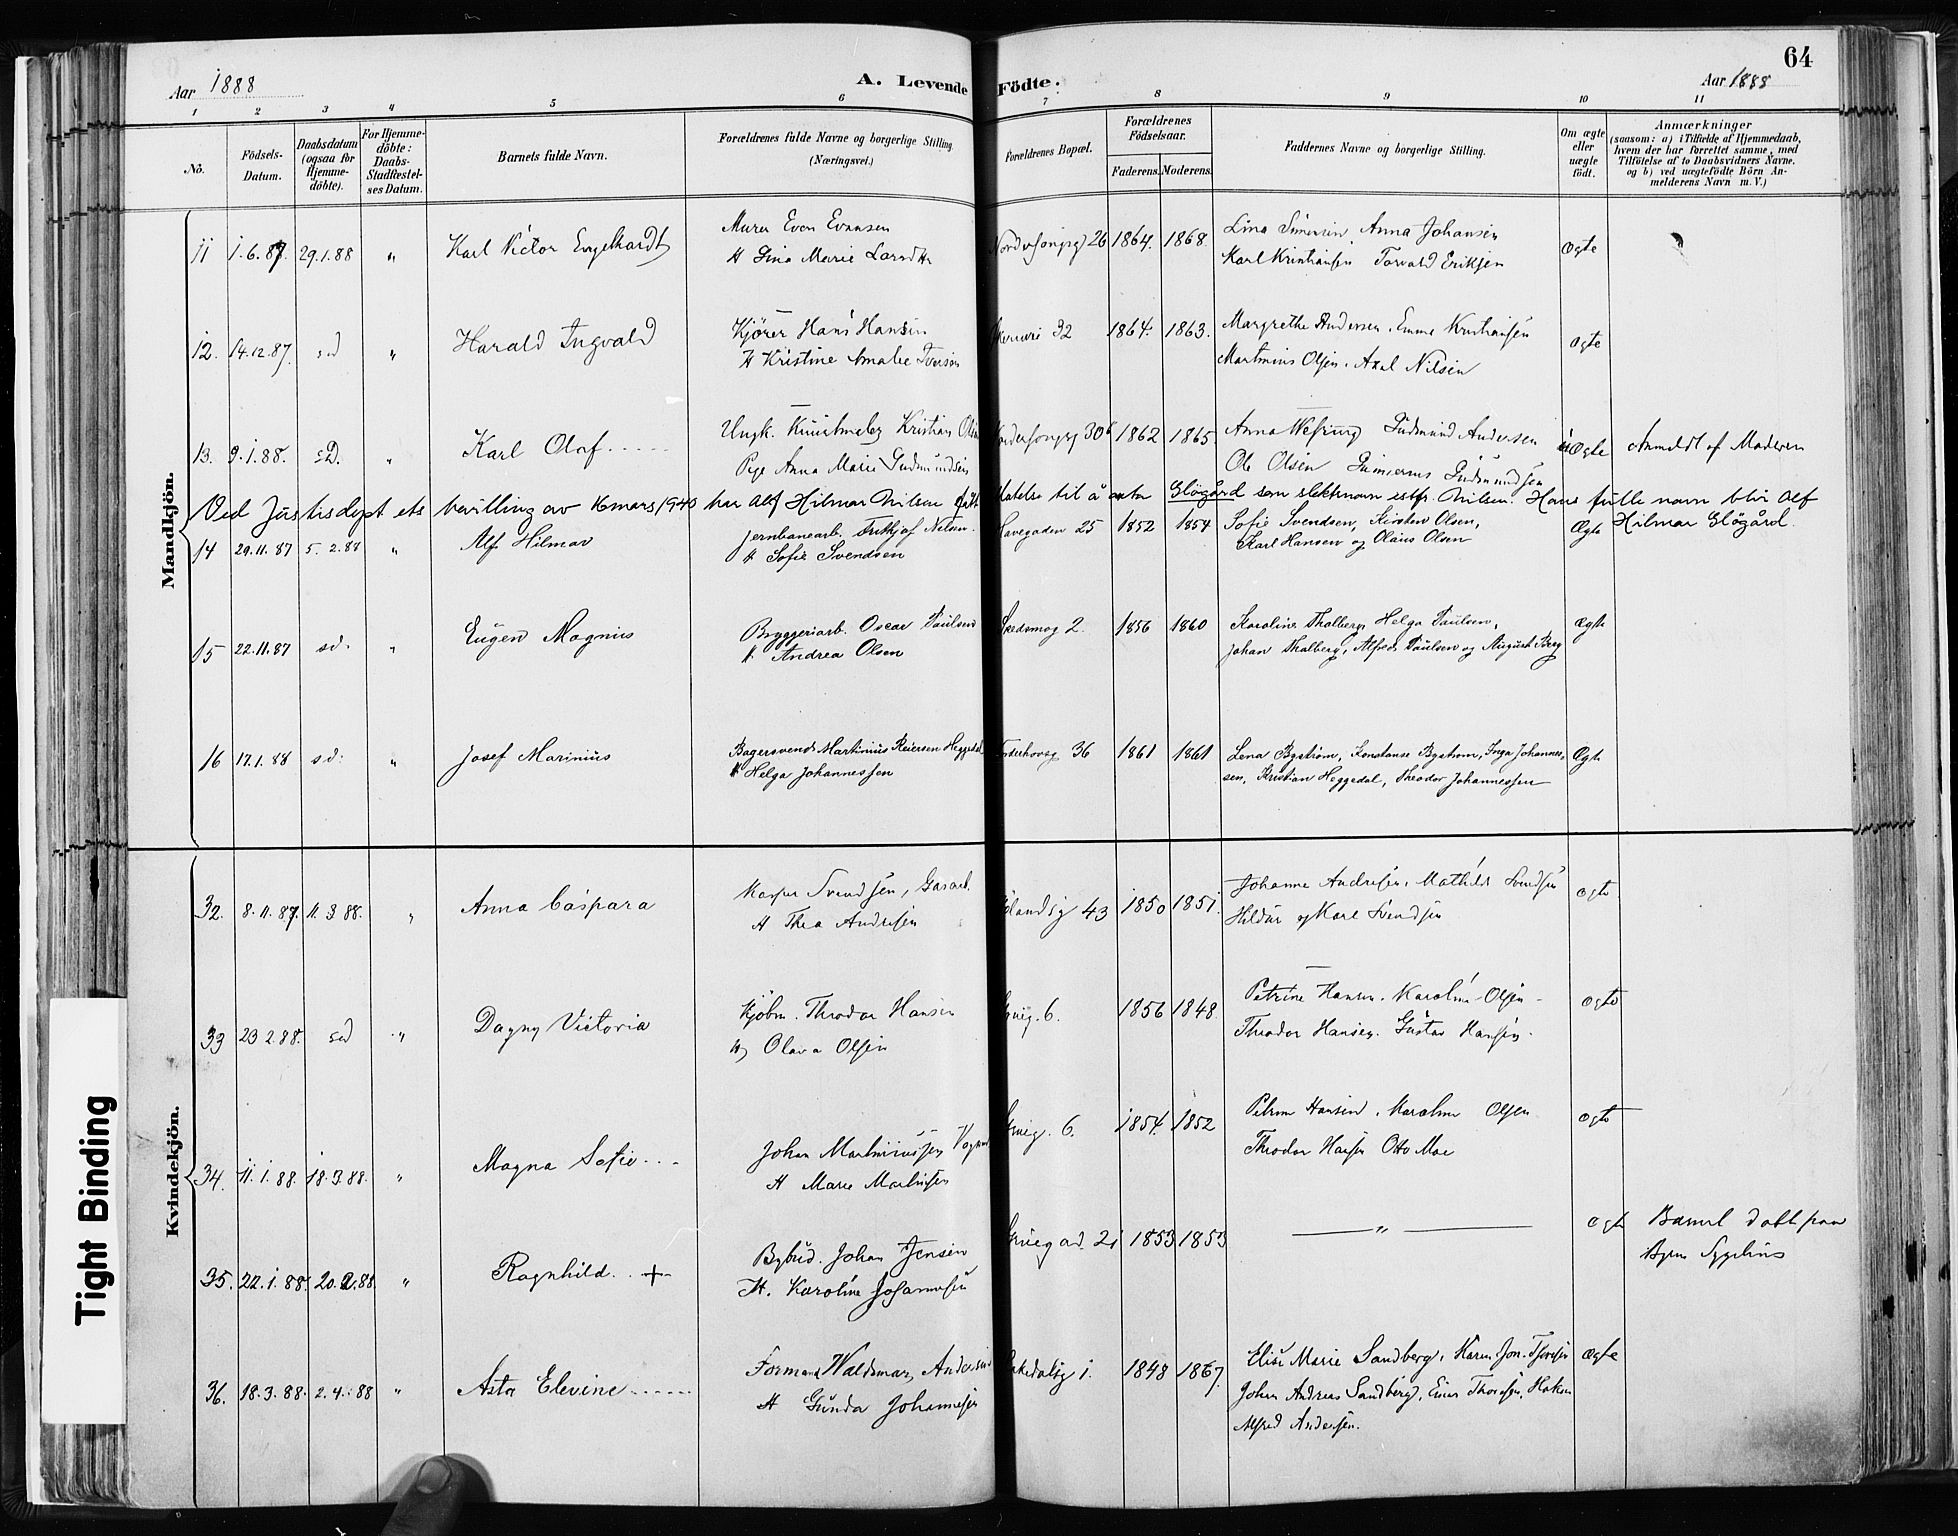 64
Aar 1888
A. Levende Födte.
Aar 1888
1 2 3 4 5 6 7 8 9 10 11
No.
Födsels-Datum.
Daabsdatum (ogsaa for Hjemme-döbte).
For Hjemme-döbte: Daabs-Stadfæstel-ses Datum.
Barnets fulde Navn.
Forældrenes fulde Navne og borgerlige Stilling. (Næringsvei.)
Forældrenes Bopæl.
Forældrenes Födselsaar.
Faderens. Moderens.
Faddernes Navne og borgerlige Stilling.
Om ægte eller uægte födt.
Anmærkninger
(saasom: a) i Tilfælde af Hjemmedaab,
hvem der har forrettet samme, med
Tilföielse af to Daabsvidners Navne.
og b) ved uægtefödte Börn An-
melderens Navn m. V.)
Mandkjön.
11 1.6.87. 29.1.88 " Karl Victor Engelhardt
Murer Even Evensen
H Lina Marie Larsdtr
26 1864. 1868.
Lina Simensen, Anna Johansen
Karl Kristiansen Torvald Eriksen
Ægte
12. 14.12.87. sd " Harald Ingvald
Kjörer Hans Hansen
H Kristine Amalie Iversen
32 1864. 1863.
Margrethe Andersen, Emma Kristiansen
Martinius Olsen, Axel Nilsen
Ægte
13. 9.1.88. sD. " Karl Olaf
Ungk. Kristian
Pige Anna Marie Gudmundsen
30b 1862 1865.
Anna Gudmund Andersen
Ole Olsen Gudmundsen
uÆgte Anmeldt af Moderen
Ved Justisdept ets bevilling av 16 mars 1940 har Alf Hilmar Nilsen fått tillatelse til å anta Gløgård som slektsnavn istf. Nilsen. Hans fulle navn blir Alf
Hilmar Gløgård.
14 29.11.87 5.2.88 " Alf Hilmar
Jernbanearb. Fritkjof Nelsen.
H Sofie Svendsen
Havegaden 25 1852 1854
Sofie Svendsen, Kirsten Olsen,
Karl Hansen og Olaus Olsen
Ægte
15 22.11.87 sd. " Eugen Magnus
Bryggeriarb. Oscar Paulsen
H. Andrea Olsen
Skedsmog 2. 1856 1860
Karoline Thalberg, Helga Paulsen,
Johan Thalberg, Alfred Paulsen og August Berg
Ægte
16 17.1.88 sd. " Josef Marinius
Bagersvend Martinius Reiersen Heggedal
H Helga Johannessen
36 1861 1861
Lena Bystrøm, Konstanse Bystrøm, Inga Johannes-
sen, Kristian Heggedal, Theodor Johannessen
Ægte
Kvindekjön.
32. 8.11.87. 11.3.88. " Anna Caspara
Kasper Svendsen, Gasarb.
H Thea Andresen
43 1850 1851.
Johanne Andresen, Mathilde Svendsen
Hildur og Karl Svendsen
Ægte
33 23.2.88. sd " Dagny Victoria
Kjöbm. Theodor Hansen
H Olava Olsen
6. 1856 1848.
Petrine Hansen. Karoline Olsen
Theodor Hansen. Gustav Hansen.
Ægte
34. 11.1.88. 18.3.88. " Magna Sofie
Johan Martiniussen
H Marie Martinsen
6. 1854. 1852
Petrine Hansen, Karoline Olsen
Theodor Hansen Otto Moe
Ægte
35. 22.1.88. 20.2.88 " Ragnhild +
Bybud. Johan Jensen
H. Karoline Johannesen
21 1853 1853
"
Ægte
36. 18.3.88. 2.4.88 " Asta Elevine
Formand Waldemar Andersen
H Gunda Johannesen
1. 1848 1867.
Elise Marie Sandberg, Karen
Johan Andreas Sandberg, Einar Haakon
Alfred Andersen.
Ægte
Tight Binding